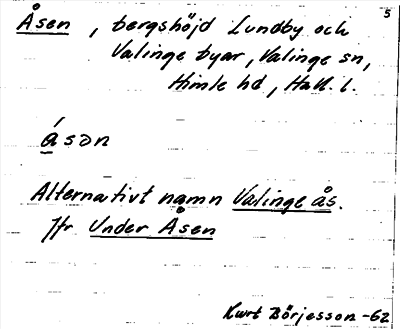 5
Åsen, bergshöjd Lundby och
Valinge byar, Valinge sn,
Himle hd, Hall. l.
åsən
Alternativt namn Valinge ås.
Jfr Under Åsen
Kurt Börjesson -62